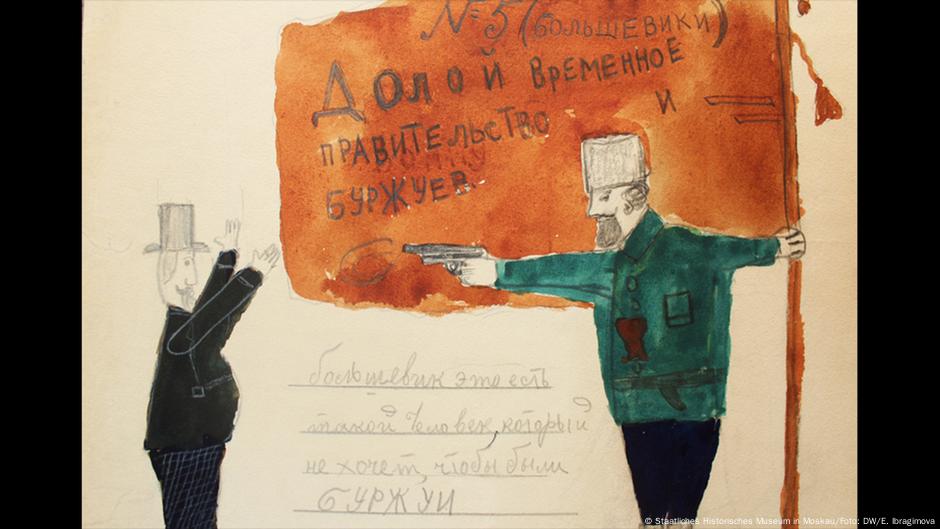 № 5 (БОЛЬШЕВИКИ)
Долой ВРЕМЕННОЕ
ПРАВИТЕЛЬСТВО И
БУРЖУЕВ.
большевик это есть
такой человек, который
не хочет, чтобы были
БУРЖУИ
© Staatliches Historisches Museum in Moskau/Foto: DW/E. Ibragimova